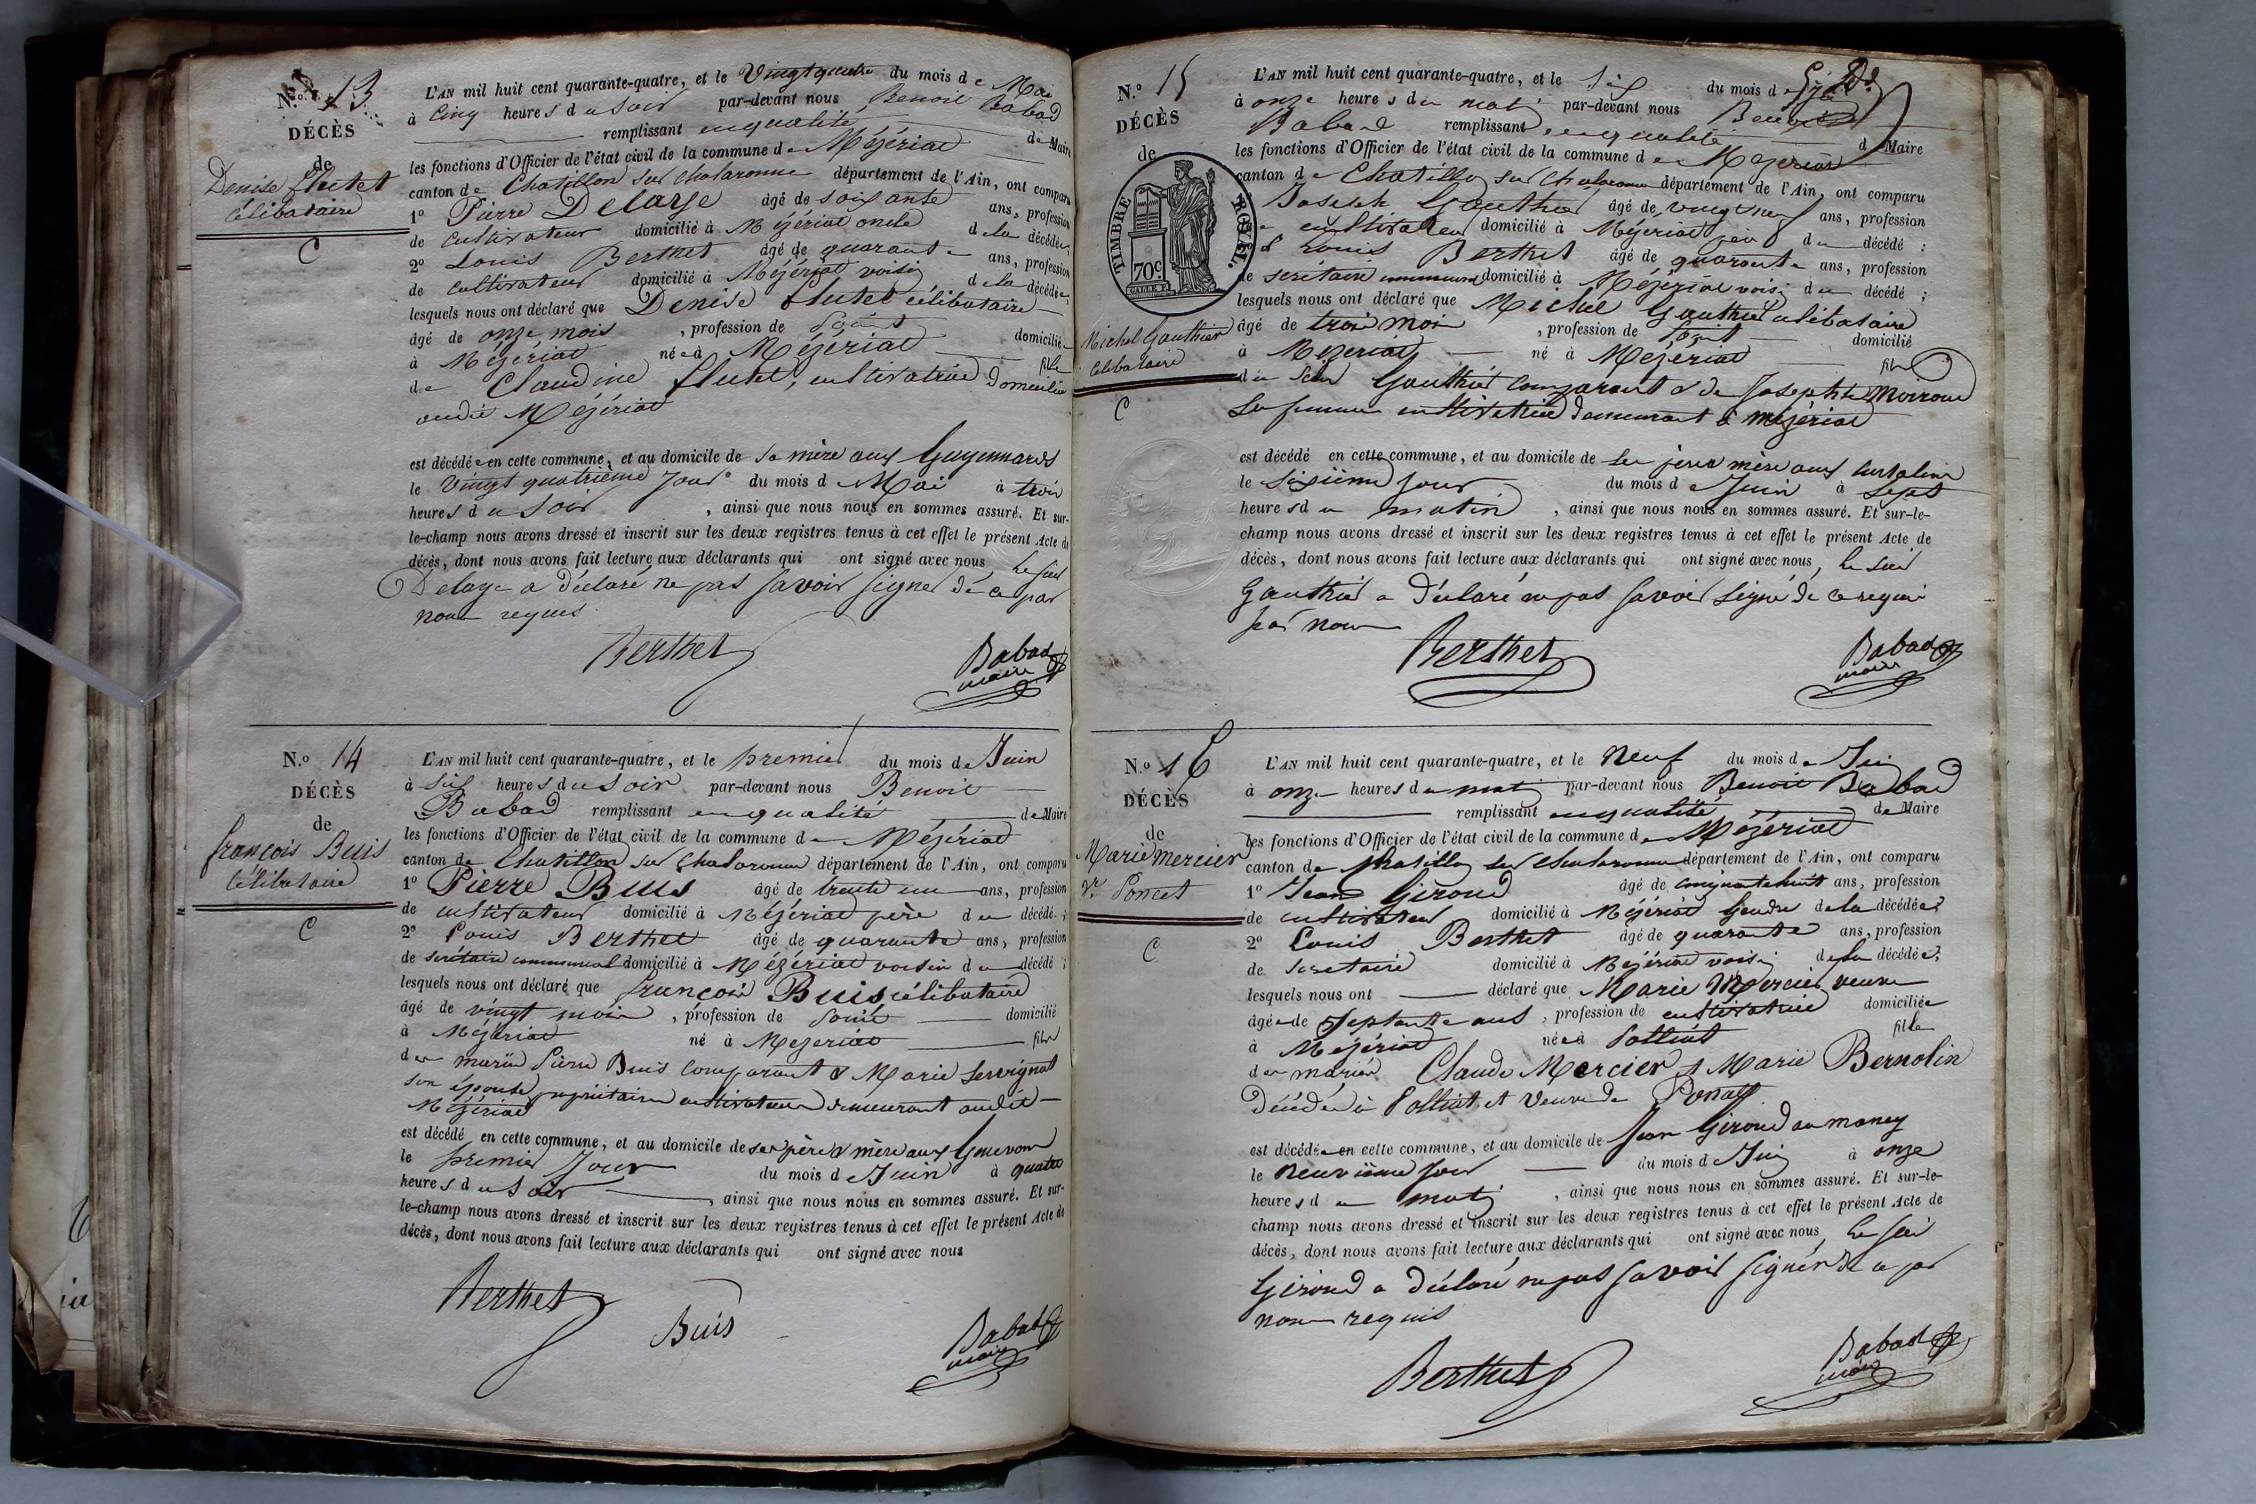 N.o 13
DÉCÈS
de
Denise Flutet
célibataire
C
L'AN mil huit cent quarante-quatre, et le Vingtquatre du mois de Mai
à Cinq heures du Soir par-devant nous Benoit Babad
remplissant en qualité de Maire
les fonctions d'Officier de l'état civil de la commune de Mézériat
canton de Chatillon sur chalaronne département de l'Ain, ont comparu
1o Pierre Delaye âgé de soixante ans, profession
de cultivateur domicilié à Mézériat oncle de la décédée;
2o Louis Berthet âgé de quarante ans, profession
de cultivateur domicilié à Mézériat voisin de la décédée,
lesquels nous ont déclaré que Denise Flutet célibataire
âgé de onze mois , profession de domiciliée
à Mézériat née à Mézériat fille
de Claudine Flutet, cultivatrice domiciliée
audit Mézériat
est décédée en cette commune, et au domicile de sa mère aux Guyennards
le vingt quatrième Jour du mois de Mai à trois
heures du Soir , ainsi que nous nous en sommes assuré. Et sur-
le-champ nous avons dressé et inscrit sur les deux registres tenus à cet effet le présent Acte de
décès, dont nous avons fait lecture aux déclarants qui ont signé avec nous, le sieur
Delaye a déclaré ne pas savoir signer de ce par
nous requis
Berthet
Babad
maire
N.o 14
DÉCÈS
de
françois Buis
célibataire
C
L'AN mil huit cent quarante-quatre, et le premier du mois de Juin
à six heures du Soir par-devant nous Benoit
Babad remplissant en qualité de Maire
les fonctions d'Officier de l'état civil de la commune de Mézériat
canton de Chatillon sur Chalaronne département de l'Ain, ont comparu
1o Pierre Buis âgé de trente un ans, profession
de cultivateur domicilié à Mézériat père du décédé;
2o Louis Berthet âgé de quarante ans, profession
de secrétaire communal domicilié à Mézériat voisin du décédé;
lesquels nous ont déclaré que françois Buis célibataire
âgé de vingt mois , profession de domicilié
à Mézériat né à Mezeriat fils
de mariés Pierre Buis comparant & Marie Servignat
son épouse propriétaires cultivateurs demeurant audit
Mézériat
est décédé en cette commune, et au domicile de ses père & mère aux
le premier Jour du mois de Juin à quatre
heures du Soir , ainsi que nous nous en sommes assuré. Et sur-
le-champ nous avons dressé et inscrit sur les deux registres tenus à cet effet le présent Acte de
décès, dont nous avons fait lecture aux déclarants qui ont signé avec nous
Berthet
Buis
Babad
maire
N.o 15
DÉCÈS
de
TIMBRE ROYAL.
70c.
Michel Gauthier
célibataire
C
L'AN mil huit cent quarante-quatre, et le Six du mois de
à onze heures du matin par-devant nous Benoit
Babad remplissant en qualité d Maire
les fonctions d'Officier de l'état civil de la commune de Mezériat
canton de Chatillon sur Chalaronne département de l'Ain, ont comparu
Joseph Gauthier âgé de vingt neuf ans, profession
cultivateur domicilié à Mézériat père du décédé:
Louis Berthet âgé de quarante ans, profession
de secrétaire communal domicilié à Mézériat voisin du décédé;
lesquels nous ont déclaré que Michel Gauthier célibataire
âgé de trois mois , profession de domicilié
à Mezeriat né à Mezériat fils
du sieur Gauthier comparant & de Josephte Moiroud
sa femme cultivatrice demeurant à Mézériat
est décédé en cette commune, et au domicile de ses père & mère aux
le sixième jour du mois de Juin à sept
heures du matin , ainsi que nous nous en sommes assuré. Et sur-le-
champ nous avons dressé et inscrit sur les deux registres tenus à cet effet le présent Acte de
décès, dont nous avons fait lecture aux déclarants qui ont signé avec nous, le sieur
Gauthier a déclaré ne pas savoir signé de ce requis
par nous
Berthet
Babad
maire
N.o 16
DÉCÈS
de
Marie mercier
Ve Poncet
C
L'AN mil huit cent quarante-quatre, et le Neuf du mois de Juin
à onze heures du matin par-devant nous Benoit Babad
remplissant en qualité de Maire
les fonctions d'Officier de l'état civil de la commune de Mézériat
canton de Chatillon sur Chalaronne département de l'Ain, ont comparu
1o Jean Giroud âgé de cinquante huit ans, profession
de cultivateur domicilié à Mézériat Gendre de la décédée;
2o Louis Berthet âgé de quarante ans, profession
de secretaire domicilié à Mézériat voisin de la décédée;
lesquels nous ont déclaré que Marie Mercier veuve
âgée de septante ans , profession de cultivatrice domiciliée
à Mézériat née à Polliat fille
de mariés Claude Mercier & Marie Bernolin
décédés à Polliat et veuve de
est décédée en cette commune, et au domicile de Jean Giroud au
le neuvième jour du mois de Juin à onze
heures du matin , ainsi que nous nous en sommes assuré. Et sur-le-
champ nous avons dressé et inscrit sur les deux registres tenus à cet effet le présent Acte de
décès, dont nous avons fait lecture aux déclarants qui ont signé avec nous, le sieur
Giroud a déclaré ne pas savoir signer de ce par
nous requis
Berthet
Babad
maire